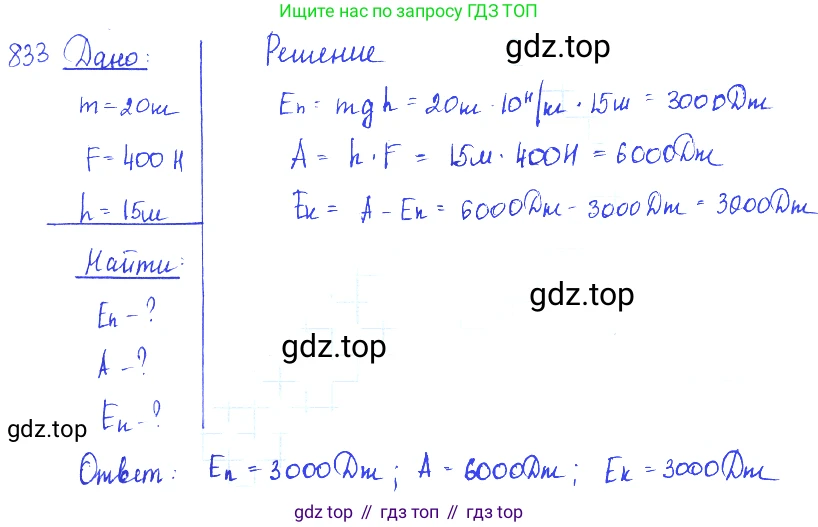 Ищите нас по запросу ГДЗ ТОП
833 Дано: Решение
gdz.top
m = 20кг Eп = mgh = 20кг · 10 Н/кг · 15м = 3000Дж
F = 400 Н A = h · F = 15м · 400Н = 6000Дж
h = 15м Eк = A - Eп = 6000Дж - 3000Дж = 3000Дж
Найти:
Eп - ?
gdz.top
gdz.top
A - ?
Eк - ?
gdz.top
Ответ: Eп = 3000Дж; A = 6000Дж; Eк = 3000Дж
gdz.top // гдз топ // гдз.top